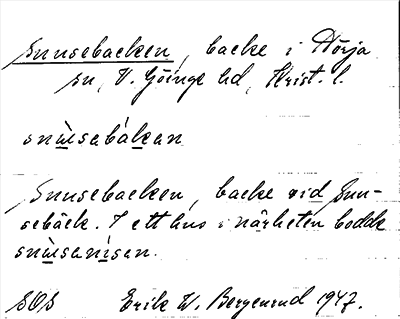 Snusebacken, backe i Nörja
sn, V. Göinge hd, Krist. l.
snusebakan
Snusebacken, backe vid Snu-
sebäck. I ett hus i närheten bodde
snusanisen.
SOS Erik W. Bergenrud 1947.